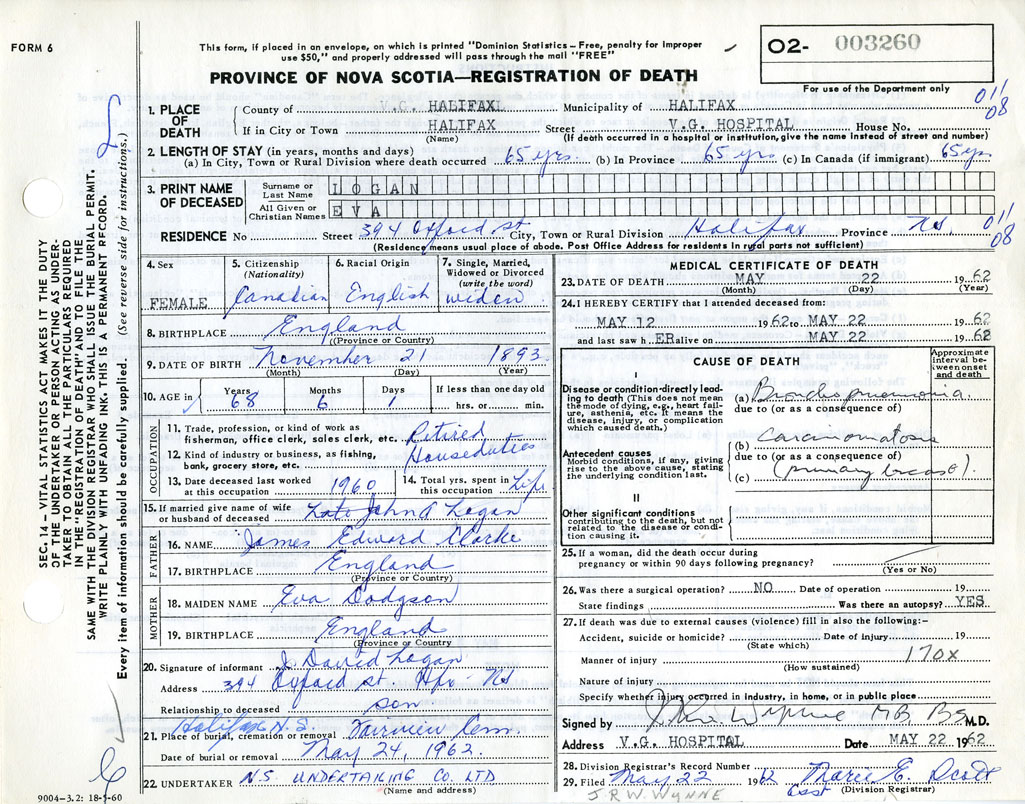 FORM 6
This form, if placed in an envelope, on which is printed "Dominion Statistics – Free, penalty for improper
use $50," and properly addressed will pass through the mail "FREE"
O2- 003260
PROVINCE OF NOVA SCOTIA—REGISTRATION OF DEATH
For use of the Department only
1. PLACE OF DEATH
County of HALIFAX Municipality of HALIFAX
011
08
If in City or Town HALIFAX Street V.G. HOSPITAL House No.
(Name) (If death occurred in a hospital or institution, give the name instead of street and number)
2. LENGTH OF STAY (in years, months and days)
(a) In City, Town or Rural Division where death occurred 65 yrs. (b) In Province 65 yrs (c) In Canada (if immigrant) 65 yrs
3. PRINT NAME OF DECEASED
Surname or Last Name LOGAN
All Given or Christian Names EVA
RESIDENCE No Street 394 Oxford St City, Town or Rural Division Halifax Province NS
011
08
(Residence means usual place of abode. Post Office Address for residents in rural parts not sufficient)
4. Sex FEMALE
5. Citizenship (Nationality) Canadian
6. Racial Origin English
7. Single, Married, Widowed or Divorced (write the word) widow
8. BIRTHPLACE England
(Province or Country)
9. DATE OF BIRTH November 21 1893
(Month) (Day) (Year)
10. AGE in Years 68 Months 6 Days 1 If less than one day old hrs. or min.
OCCUPATION
11. Trade, profession, or kind of work as fisherman, office clerk, sales clerk, etc. Retired
12. Kind of industry or business, as fishing, bank, grocery store, etc. Houseduties
13. Date deceased last worked at this occupation 1960
14. Total yrs. spent in this occupation Life
15. If married give name of wife or husband of deceased Late John A Logan
FATHER
16. NAME James Edward Clarke
17. BIRTHPLACE England
(Province or Country)
MOTHER
18. MAIDEN NAME Eva Dodgson
19. BIRTHPLACE England
(Province or Country)
20. Signature of informant J. David Logan
Address 394 Oxford St. Hfx NS
Relationship to deceased son
Halifax N.S.
21. Place of burial, cremation or removal Fairview Cem.
Date of burial or removal May 24, 1962.
22. UNDERTAKER N.S. UNDERTAKING CO. LTD
(Name and address)
9004-3.2: 18-5-60
MEDICAL CERTIFICATE OF DEATH
23. DATE OF DEATH MAY 22 1962
(Month) (Day) (Year)
24. I HEREBY CERTIFY that I attended deceased from:
MAY 12 1962 to MAY 22 1962
and last saw h ER alive on MAY 22 1962
CAUSE OF DEATH
Approximate interval between onset and death
I
Disease or condition directly leading to death (This does not mean the mode of dying, e.g., heart failure, asthenia, etc. It means the disease, injury, or complication which caused death.)
(a) Bronchopneumonia.
due to (or as a consequence of)
Antecedent causes
Morbid conditions, if any, giving rise to the above cause, stating the underlying condition last.
(b) Carcinomatosis
due to (or as a consequence of)
(c) (primary breast).
II
Other significant conditions
contributing to the death, but not related to the disease or condition causing it.
25. If a woman, did the death occur during
pregnancy or within 90 days following pregnancy?
(Yes or No)
26. Was there a surgical operation? NO Date of operation 19
State findings Was there an autopsy? YES
27. If death was due to external causes (violence) fill in also the following:-
Accident, suicide or homicide? Date of injury 19
(State which)
Manner of injury 170X
(How sustained)
Nature of injury
Specify whether injury occurred in industry, in home, or in public place
Signed by J.R.W. Wynne MB BS M.D.
Address V.G. HOSPITAL Date MAY 22 1962
28. Division Registrar's Record Number
29. Filed May 22 1962 Marie E. Scott
Asst (Division Registrar)
J.R.W. WYNNE
SEC. 14 – VITAL STATISTICS ACT MAKES IT THE DUTY
OF THE UNDERTAKER OR PERSON ACTING AS UNDER-
TAKER TO OBTAIN ALL THE PARTICULARS REQUIRED
IN THE "REGISTRATION OF DEATH" AND TO FILE THE
SAME WITH THE DIVISION REGISTRAR WHO SHALL ISSUE THE BURIAL PERMIT.
WRITE PLAINLY WITH UNFADING INK. THIS IS A PERMANENT RECORD.
Every item of information should be carefully supplied. (See reverse side for instructions.)